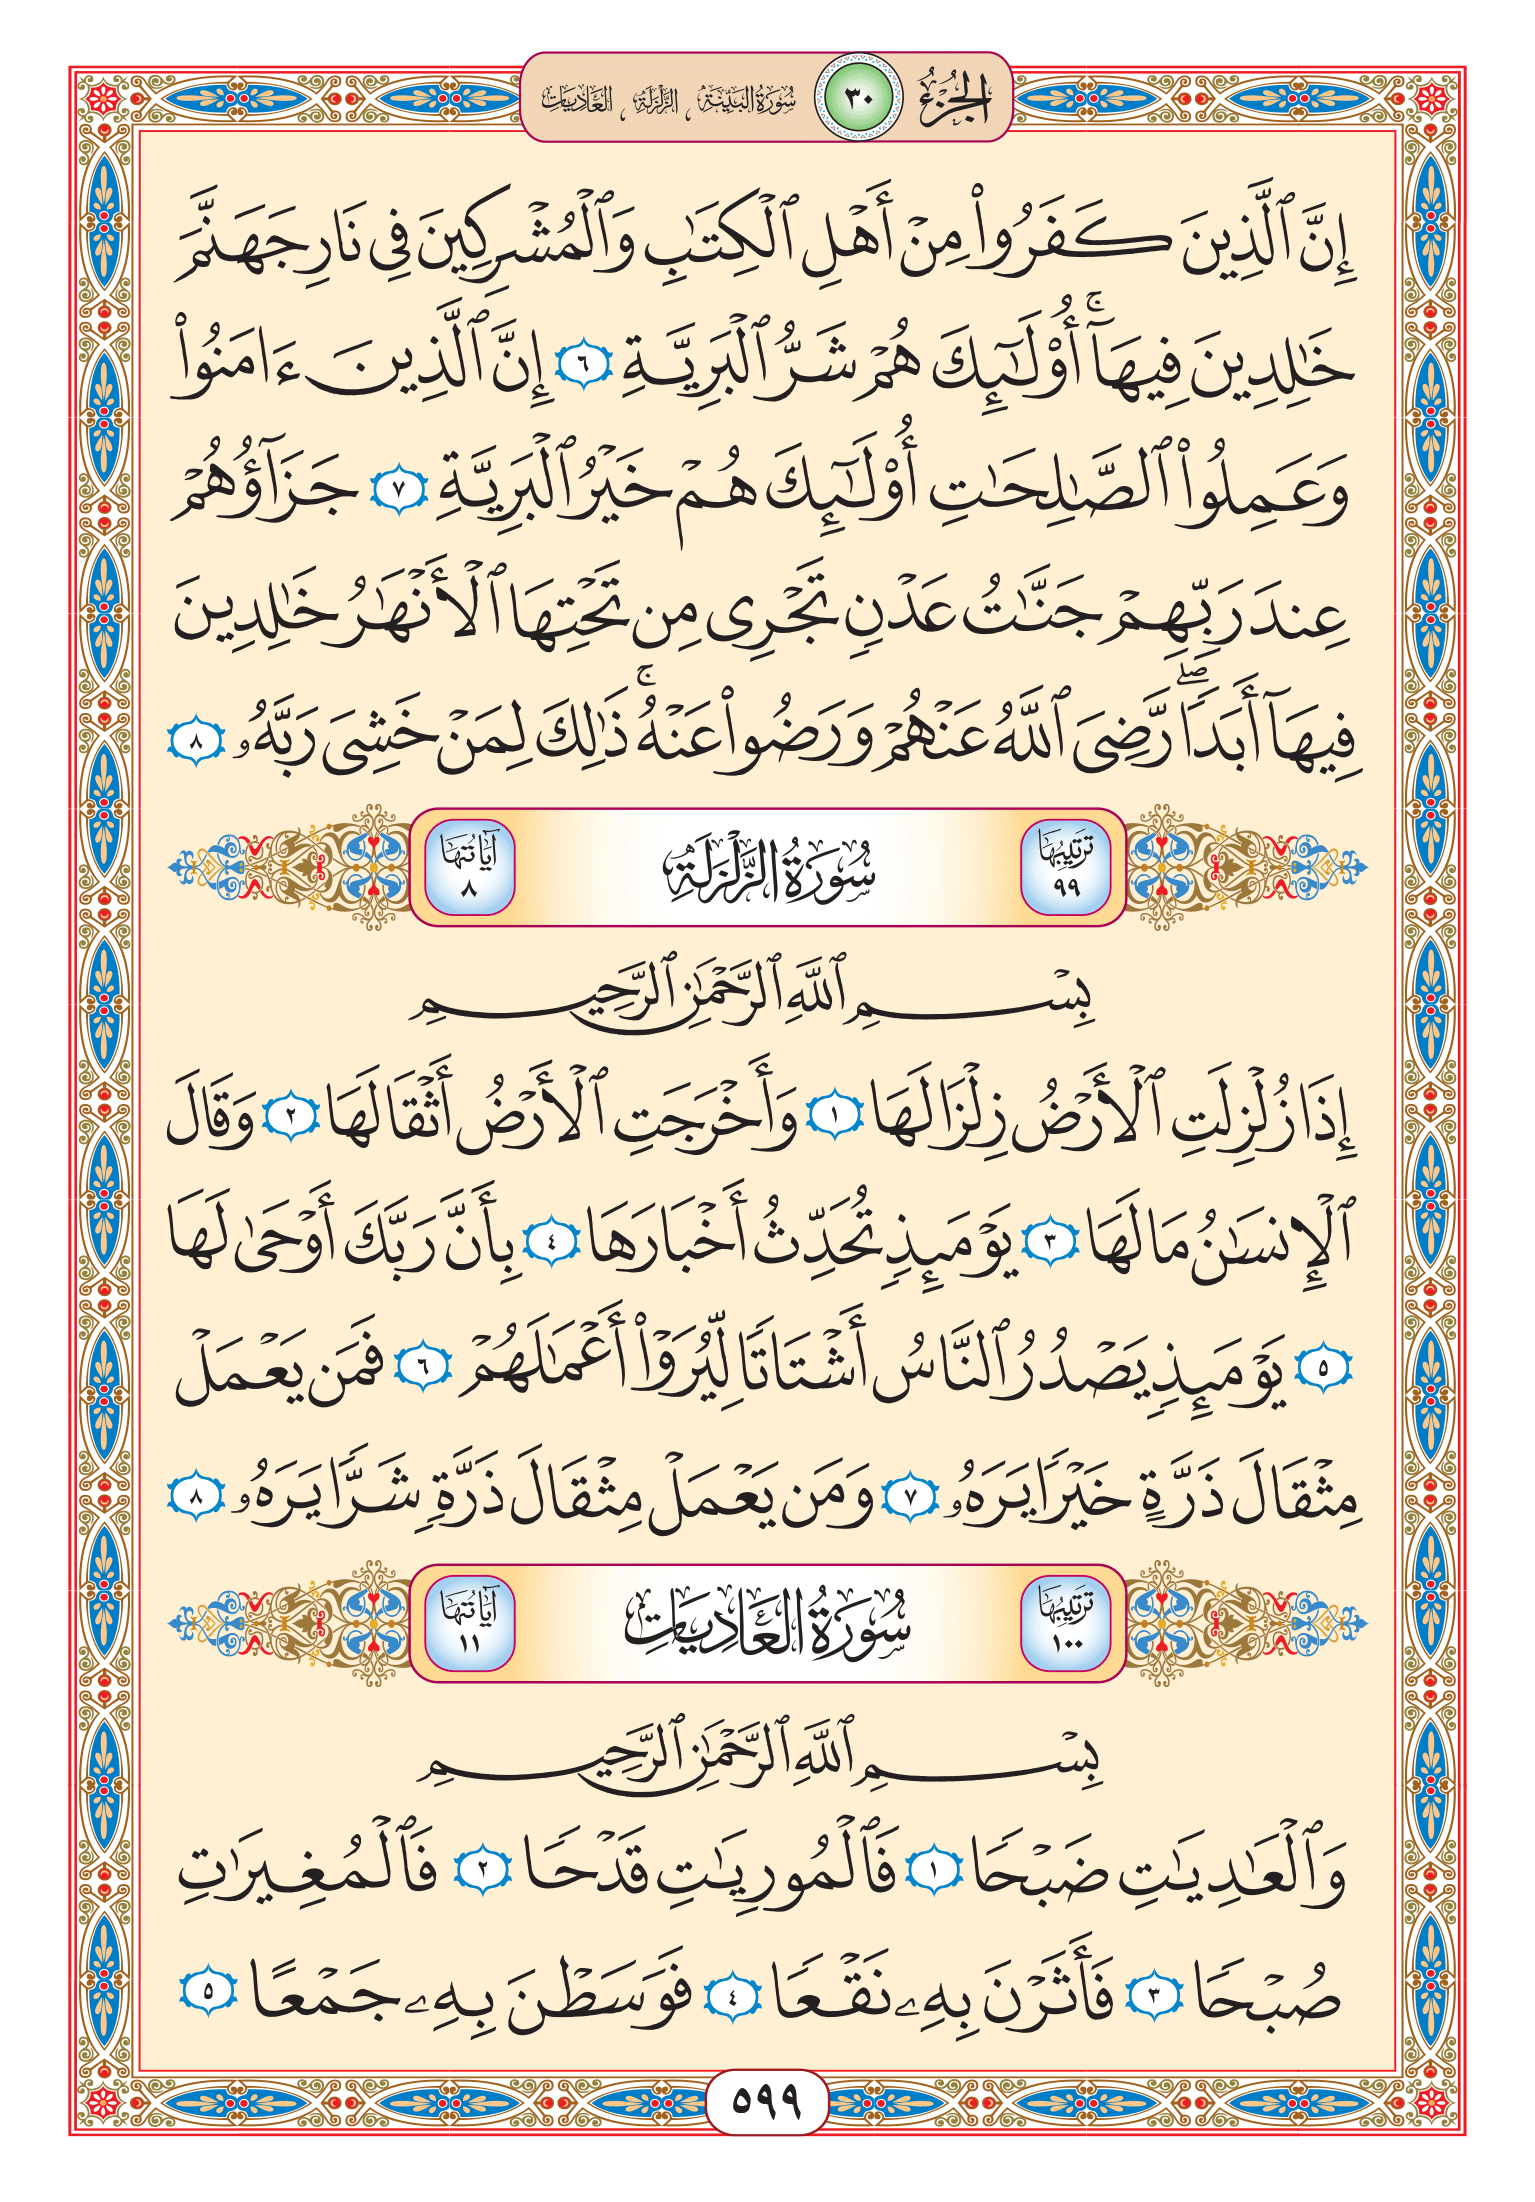 الجزء ٣٠ سورة البينة ، الزلزلة ، العاديات
إِنَّ ٱلَّذِينَ كَفَرُوا۟ مِنْ أَهْلِ ٱلْكِتَـٰبِ وَٱلْمُشْرِكِينَ فِى نَارِ جَهَنَّمَ
خَـٰلِدِينَ فِيهَآ ۚ أُو۟لَـٰٓئِكَ هُمْ شَرُّ ٱلْبَرِيَّةِ ٦ إِنَّ ٱلَّذِينَ ءَامَنُوا۟
وَعَمِلُوا۟ ٱلصَّـٰلِحَـٰتِ أُو۟لَـٰٓئِكَ هُمْ خَيْرُ ٱلْبَرِيَّةِ ٧ جَزَآؤُهُمْ
عِندَ رَبِّهِمْ جَنَّـٰتُ عَدْنٍ تَجْرِى مِن تَحْتِهَا ٱلْأَنْهَـٰرُ خَـٰلِدِينَ
فِيهَآ أَبَدًا ۖ رَّضِىَ ٱللَّهُ عَنْهُمْ وَرَضُوا۟ عَنْهُ ۚ ذَٰلِكَ لِمَنْ خَشِىَ رَبَّهُۥ ٨
ترتيبها ٩٩ سُورَةُ الزَّلْزَلَةِ آياتُها ٨
بِسْمِ ٱللَّهِ ٱلرَّحْمَـٰنِ ٱلرَّحِيمِ
إِذَا زُلْزِلَتِ ٱلْأَرْضُ زِلْزَالَهَا ١ وَأَخْرَجَتِ ٱلْأَرْضُ أَثْقَالَهَا ٢ وَقَالَ
ٱلْإِنسَـٰنُ مَا لَهَا ٣ يَوْمَئِذٍ تُحَدِّثُ أَخْبَارَهَا ٤ بِأَنَّ رَبَّكَ أَوْحَىٰ لَهَا
٥ يَوْمَئِذٍ يَصْدُرُ ٱلنَّاسُ أَشْتَاتًا لِّيُرَوْا۟ أَعْمَـٰلَهُمْ ٦ فَمَن يَعْمَلْ
مِثْقَالَ ذَرَّةٍ خَيْرًا يَرَهُۥ ٧ وَمَن يَعْمَلْ مِثْقَالَ ذَرَّةٍ شَرًّا يَرَهُۥ ٨
ترتيبها ١٠٠ سُورَةُ العَادِيَاتِ آياتُها ١١
بِسْمِ ٱللَّهِ ٱلرَّحْمَـٰنِ ٱلرَّحِيمِ
وَٱلْعَـٰدِيَـٰتِ ضَبْحًا ١ فَٱلْمُورِيَـٰتِ قَدْحًا ٢ فَٱلْمُغِيرَٰتِ
صُبْحًا ٣ فَأَثَرْنَ بِهِۦ نَقْعًا ٤ فَوَسَطْنَ بِهِۦ جَمْعًا ٥
٥٩٩